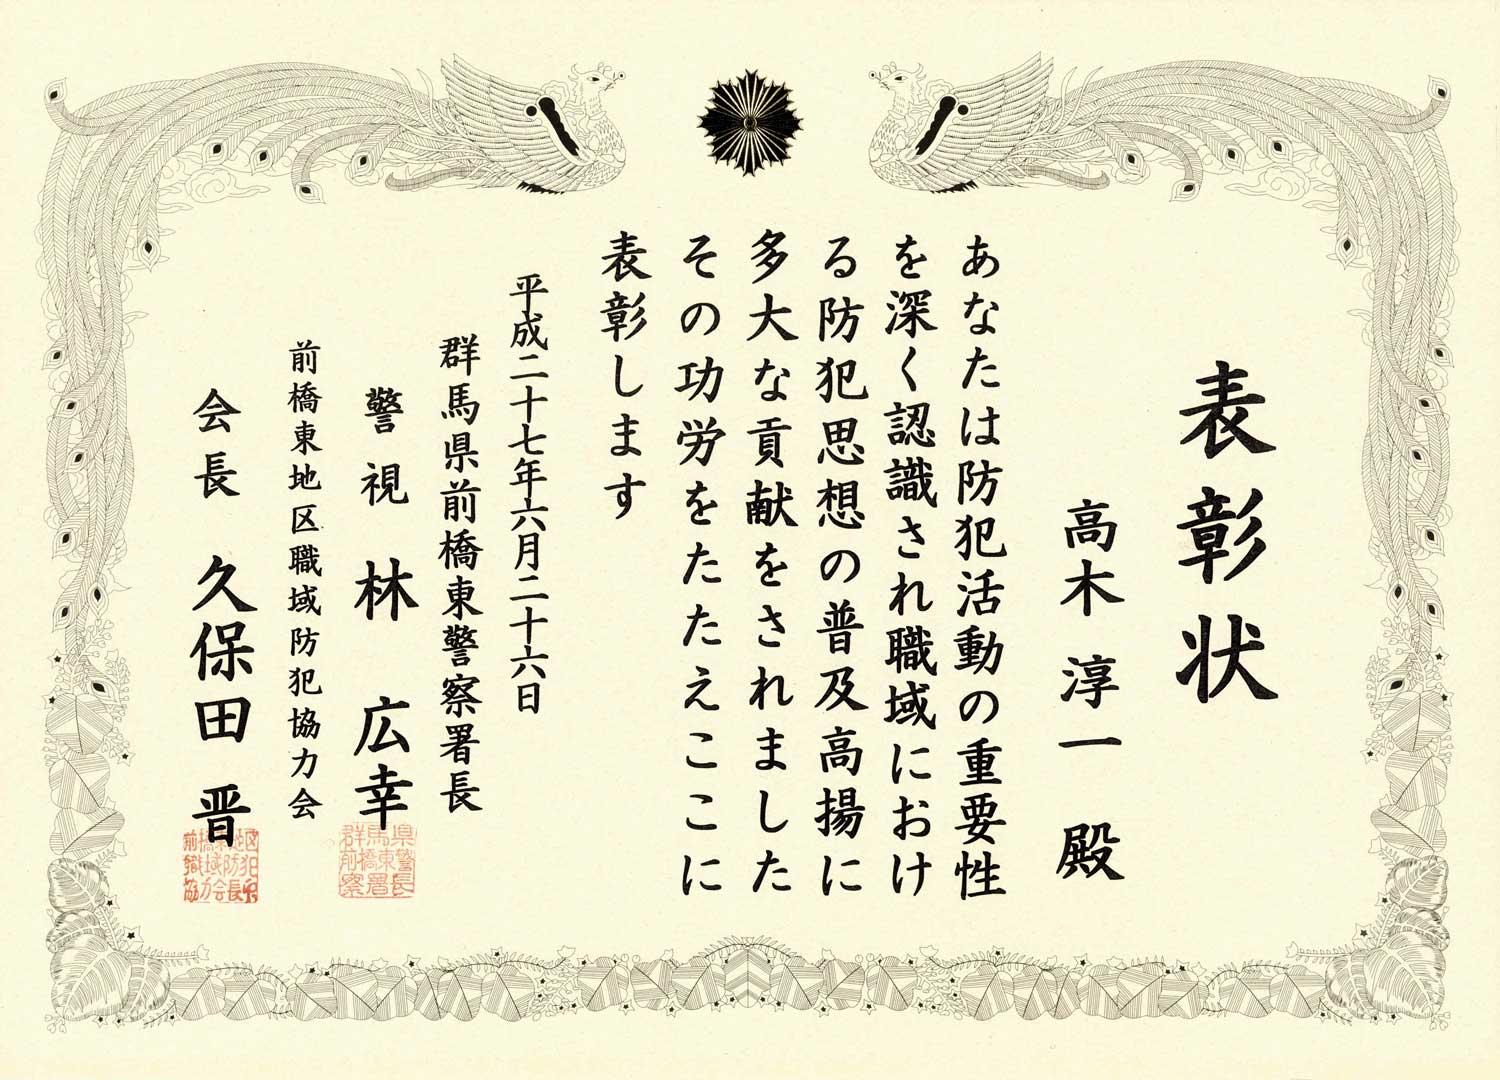 表彰状
高木淳一殿
あなたは防犯活動の重要性
を深く認識され職域におけ
る防犯思想の普及高揚に
多大な貢献をされました
その功労をたたえここに
表彰します
平成二十七年六月二十六日
群馬県前橋東警察署長
警視 林 広幸
前橋東地区職域防犯協力会
会長 久保田 晋